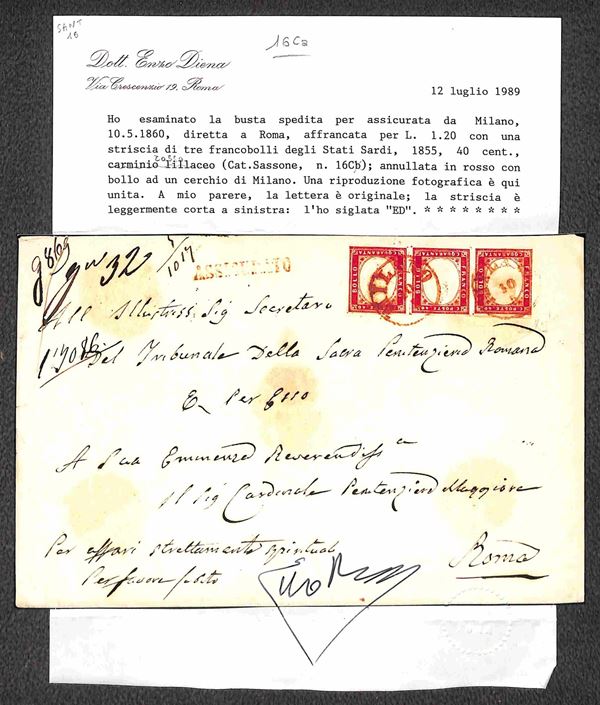 SANT
16
16Ca
Dott. Enzo Diena
Via Crescenzio 19. Roma
12 luglio 1989
Ho esaminato la busta spedita per assicurata da Milano,
10.5.1860, diretta a Roma, affrancata per L. 1.20 con una
striscia di tre francobolli degli Stati Sardi, 1855, 40 cent.,
rosso
carminio lillaceo (Cat.Sassone, n. 16Cb); annullata in rosso con
bollo ad un cerchio di Milano. Una riproduzione fotografica è qui
unita. A mio parere, la lettera è originale; la striscia è
leggermente corta a sinistra: l'ho siglata "ED". * * * * * * * *
9869
32
1017
ASSICURATO
C.QUARANTA C.QUARANTA C.QUARANTA
BOLLO FRANCO BOLLO FRANCO BOLLO FRANCO
C.POSTE 40 C.POSTE 40 C.POSTE 40
10
All Illustriss. Sig Secretaro
Del Tribunale Della Sacra Penitenzieria Romana
E Per Esso
A Sua Eminenza Reverendissa
Il Sig Cardinale Penitenziere Maggiore
Per affari strettamente spirituali
Roma
Per favore